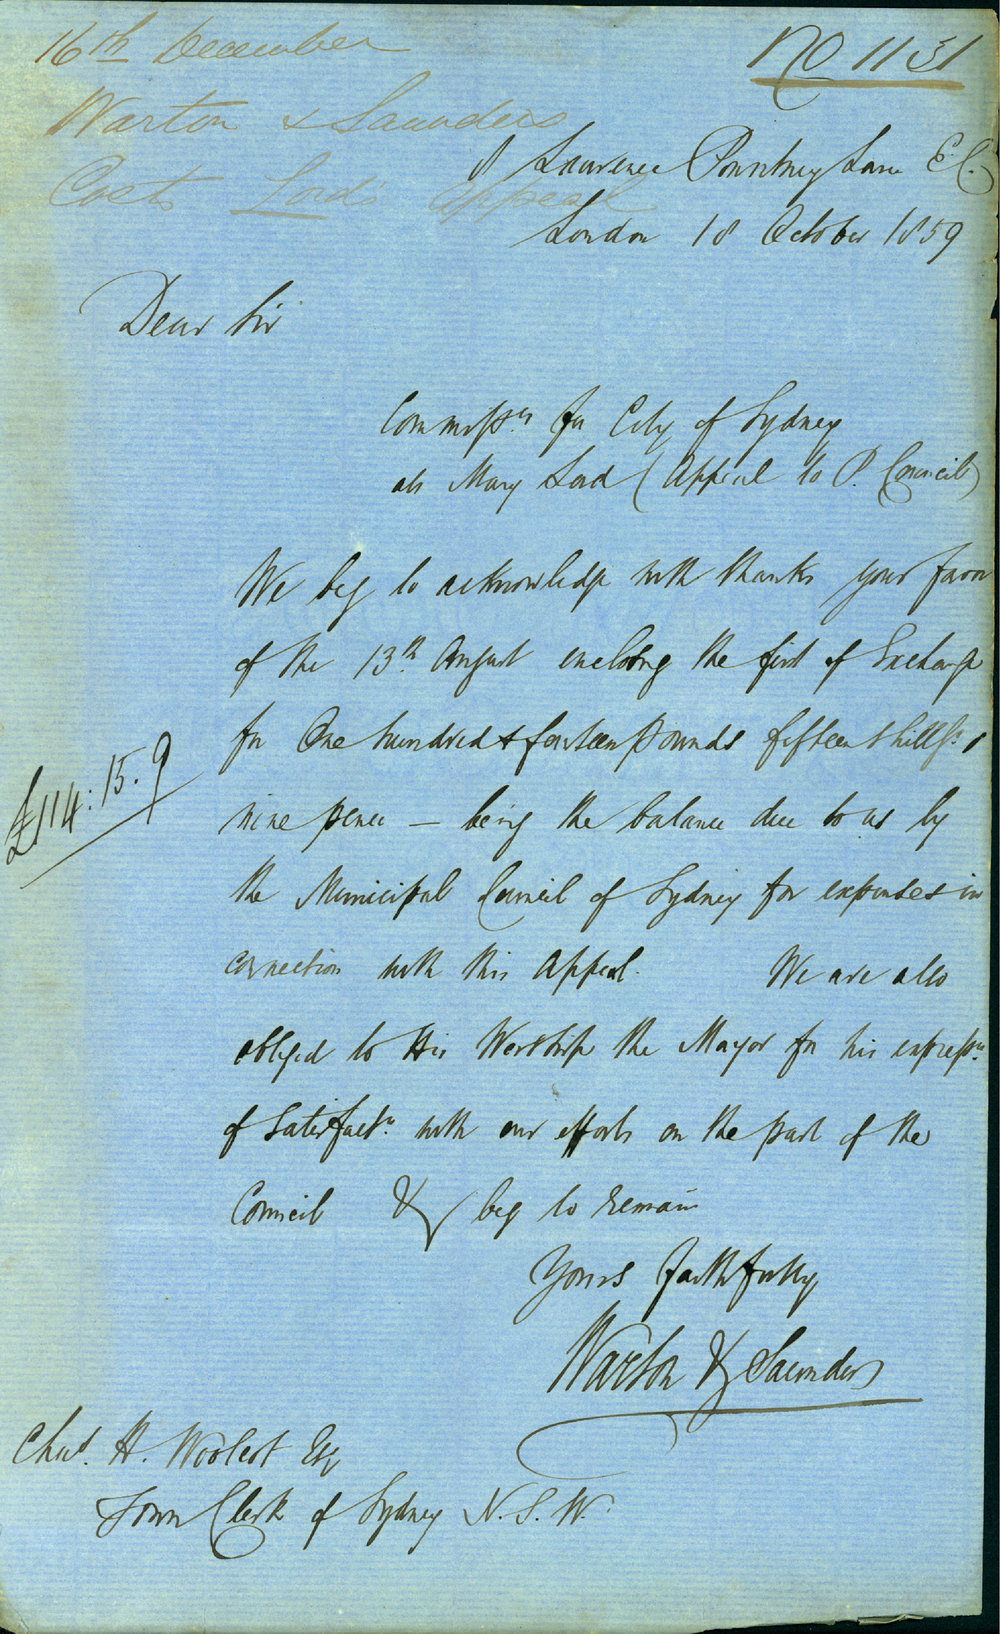 16th December
No 1131
Warton & Saunders
Costs Lord's Appeal
8 Laurence Pountney Lane E.C.
London 18 October 1859
Dear Sir
Commissrs for City of Sydney
ats Mary Lord (Appeal to P. Council)
We beg to acknowledge with thanks your favor
of the 13th August enclosing the first of Exchange
for One hundred & fourteen pounds fifteen shillgs &
nine pence — being the balance due to us by
£114:15.9
the Municipal Council of Sydney for expenses in
connection with this Appeal. We are also
obliged to His Worship the Mayor for his expressn
of satisfactn with our efforts on the part of the
Council & beg to remain
Yours faithfully
Warton & Saunders
Chas. H. Woolcott Esq
Town Clerk of Sydney N.S.W.